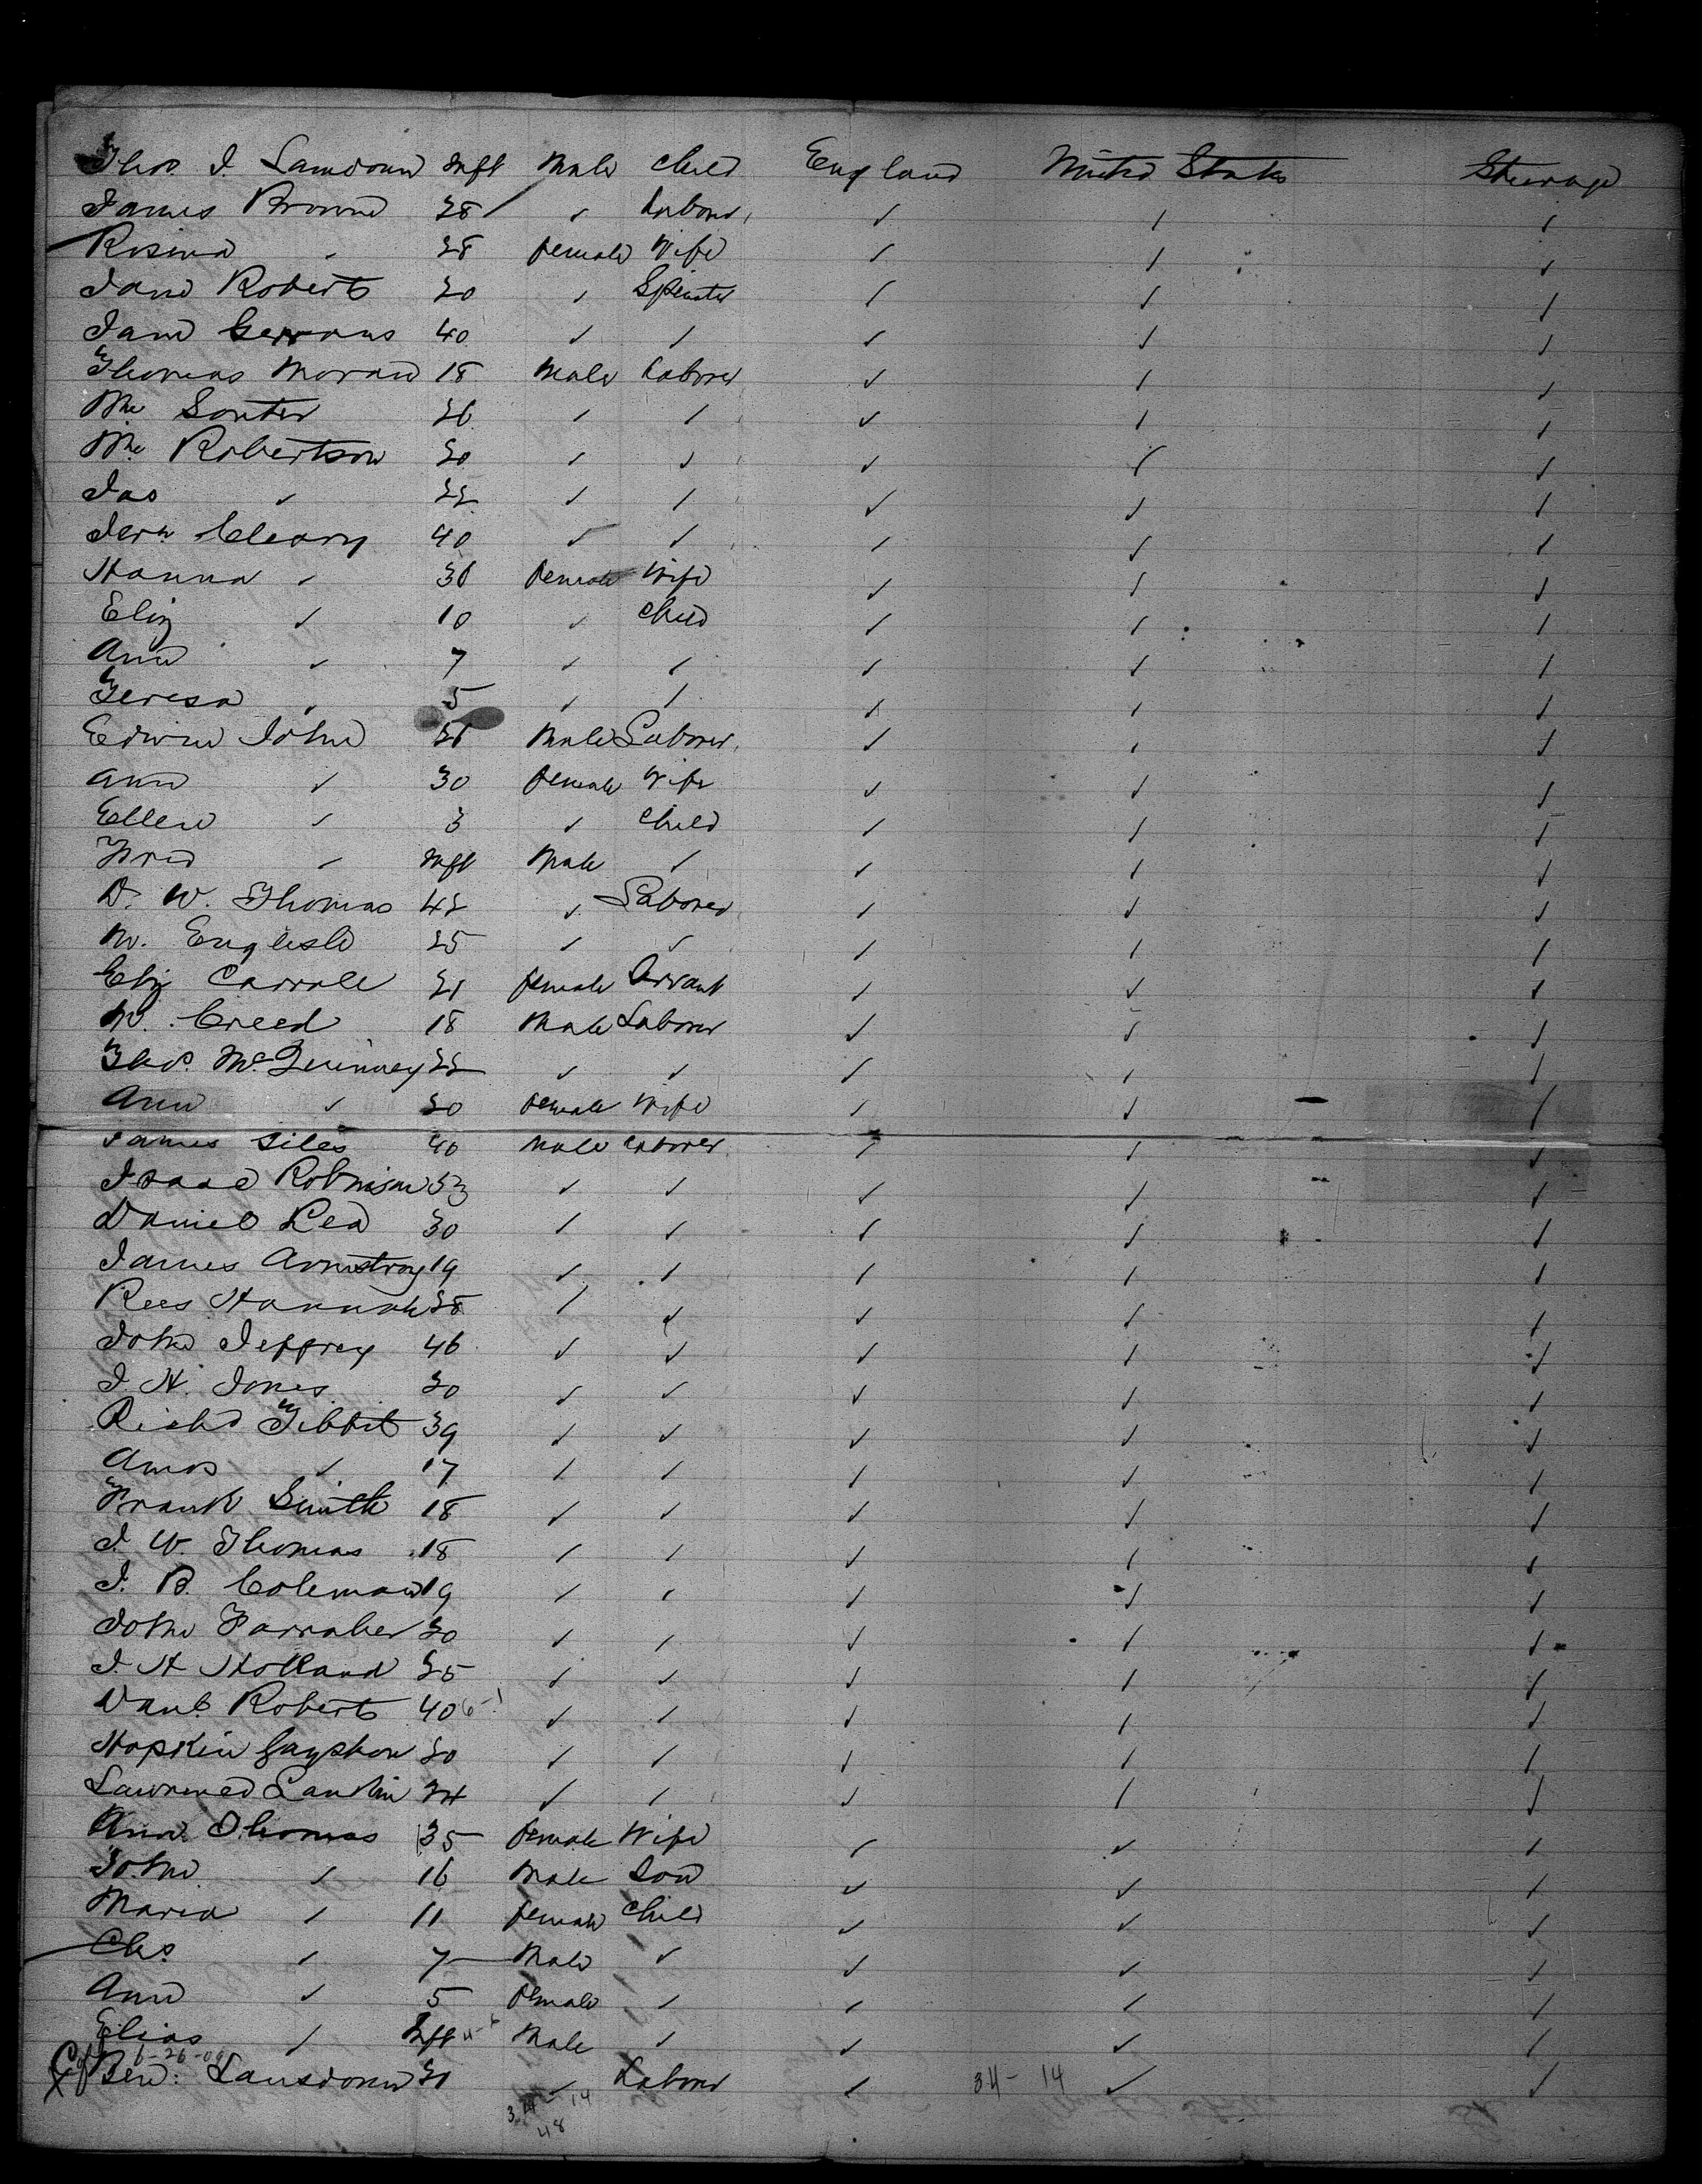 Thos. J. Lansdown Inft Male Child England United States Steerage
James Brown 28 ✓ Labour ✓ ✓ ✓
Rosina ✓ 28 female Wife ✓ ✓ ✓
Jane Roberts 20 ✓ Spinster ✓ ✓ ✓
Jane 40 ✓ ✓ ✓ ✓ ✓
Thomas Moran 18 Male Laborer ✓ ✓ ✓
Wm Souter 26 ✓ ✓ ✓ ✓ ✓
Wm Robertson 20 ✓ ✓ ✓ ✓ ✓
Jas ✓ 22 ✓ ✓ ✓ ✓ ✓
Jerh Cleary 40 ✓ ✓ ✓ ✓ ✓
Hanna ✓ 36 female Wife ✓ ✓ ✓
Eliz ✓ 10 ✓ Child ✓ ✓ ✓
Ann ✓ 7 ✓ ✓ ✓ ✓ ✓
Teresa ✓ 5 ✓ ✓ ✓ ✓ ✓
Edwin John Male Laborer ✓ ✓ ✓
Ann ✓ 30 female Wife ✓ ✓ ✓
Ellen ✓ 3 ✓ Child ✓ ✓ ✓
Fred ✓ Inft Male ✓ ✓ ✓ ✓
D. W. Thomas 42 ✓ Laborer ✓ ✓ ✓
M. English 25 ✓ ✓ ✓ ✓ ✓
Eliz Carroll 21 female Servant ✓ ✓ ✓
M. Creed 18 Male Laborer ✓ ✓ ✓
Thos. 22 ✓ ✓ ✓ ✓ ✓
Ann ✓ 20 female Wife ✓ ✓ ✓
James Giles 40 Male Laborer ✓ ✓ ✓
Isaac Robinson 53 ✓ ✓ ✓ ✓ ✓
Daniel Rea 30 ✓ ✓ ✓ ✓ ✓
James Armstrong 19 ✓ ✓ ✓ ✓ ✓
Rees Hannah 28 ✓ ✓ ✓ ✓ ✓
John Jeffrey 46 ✓ ✓ ✓ ✓ ✓
J. H. Jones 20 ✓ ✓ ✓ ✓ ✓
Richd Tibbits 39 ✓ ✓ ✓ ✓ ✓
Amos ✓ 17 ✓ ✓ ✓ ✓ ✓
Frank Smith 18 ✓ ✓ ✓ ✓ ✓
J. W. Thomas 18 ✓ ✓ ✓ ✓ ✓
J. B. Coleman 19 ✓ ✓ ✓ ✓ ✓
John Farraher 20 ✓ ✓ ✓ ✓ ✓
J. H Holland 25 ✓ ✓ ✓ ✓ ✓
Danl Roberts 40 ✓ ✓ ✓ ✓ ✓
Hopkin 20 ✓ ✓ ✓ ✓ ✓
Lawrence 24 ✓ ✓ ✓ ✓ ✓
Ann Thomas 35 female Wife ✓ ✓ ✓
John ✓ 16 Male Son ✓ ✓ ✓
Maria ✓ 11 female Child ✓ ✓ ✓
Chs. ✓ 7 Male ✓ ✓ ✓ ✓
Ann ✓ 5 female ✓ ✓ ✓ ✓
Elias ✓ Inft Male ✓ ✓ ✓ ✓
6-26-06
Ben: Lansdown ✓ Labour ✓ 34-14 ✓ ✓
34-14
48